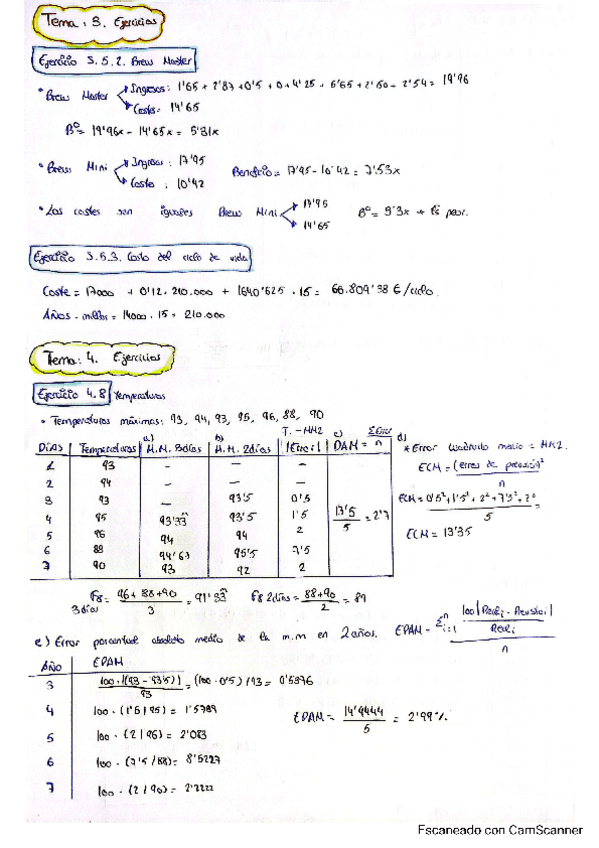 Tema: 3. Ejercicios
Ejercicio 3.5.2. Brew Master
• Brew Master
Ingresos: 1'65 + 2'87 + 0'5 + 0 + 4'25 + 5'65 + 2'50 + 2'54 = 19'96
Coste: 14'65
Bº = 19'96x - 14'65x = 5'31x
• Brew Mini
Ingresos: 17'95
Costo: 10'42
Beneficio = 17'95 - 10'42 = 7'53x
• Los costes son iguales Brew Mini
17'95
14'65
Bº = 3'3x → Es peor.
Ejercicio 3.5.3. Costo del ciclo de vida
Coste = 17000 + 0'12 · 210.000 + 1640'625 · 15 = 66.809'38 €/ciclo.
Años · millas = 14000 · 15 = 210.000
Tema: 4. Ejercicios
Ejercicio 4.8 Temperaturas
• Temperaturas máximas: 93, 94, 93, 95, 96, 88, 90
T. - MM2
DÍAS Temperaturas a) M.M. 3días b) M.M. 2días |Error| c) DAM = Σ Error / n
1 93 — — —
2 94 — — —
3 93 — 93'5 0'5
4 95 93'33 93'5 1'5
5 96 94 94 2
6 88 94'67 95'5 7'5
7 90 93 92 2
13'5 / 5 = 2'7
d) * Error cuadrado medio = MM2.
ECM = (errores de previsión)² / n
ECM = 0'5² + 1'5² + 2² + 7'5² + 2² / 5 =
ECM = 13'35
F8 3días = 96 + 88 + 90 / 3 = 91'33
F8 2días = 88 + 90 / 2 = 89
e) Error porcentual absoluto medio de la m.m en 2 años.
EPAM = Σⁿ i=1 100 |Reali - Previstoi| / Reali / n
AÑO EPAM
3 100 · |(93 - 93'5)| / 93 = (100 · 0'5) / 93 = 0'5376
4 100 · (1'5 / 95) = 1'5789
5 100 · (2 / 96) = 2'083
6 100 · (7'5 / 88) = 8'5227
7 100 · (2 / 90) = 2'2222
EPAM = 14'9444 / 5 = 2'99 %
Escaneado con CamScanner